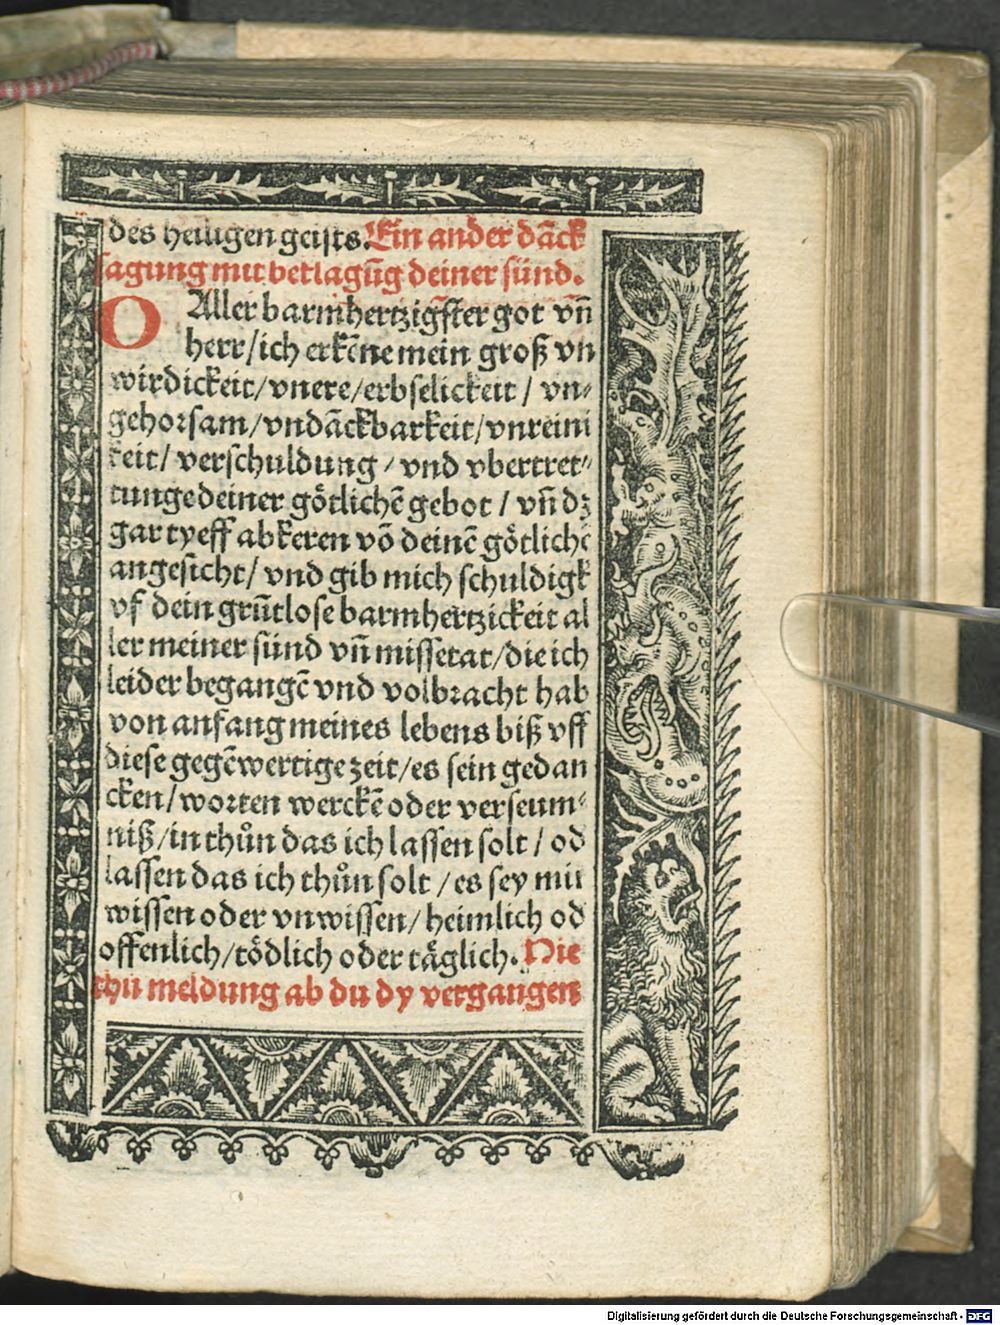 des heiligen geists. Ein ander dāck
sagung mit beklagūg deiner sünd.
O Aller barmhertzigster got vn̄
herr/ich erkēne mein groß vn
wirdickeit/vnere/erbselickeit / vn⸗
gehorsam/vndāckbarkeit/vnreini
keit/ verschuldung / vnd vbertret⸗
tunge deiner götlichē gebot / vn̄ dz
gar tyeff abkeren vō deinē götlichē
angesicht/ vnd gib mich schuldigk
vf dein grūtlose barmhertzickeit al
ler meiner sünd vn̄ missetat/die ich
leider begangē vnd volbracht hab
von anfang meines lebens biß vff
diese gegēwertige zeit/es sein gedan
cken/worten werckē oder verseum⸗
niß/in thůn das ich lassen solt/ od
lassen das ich thůn solt /es sey mit
wissen oder vnwissen/ heimlich od
offenlich/tödlich oder täglich. Hie
thu meldung ab du dy vergangen
Digitalisierung gefördert durch die Deutsche Forschungsgemeinschaft - DFG